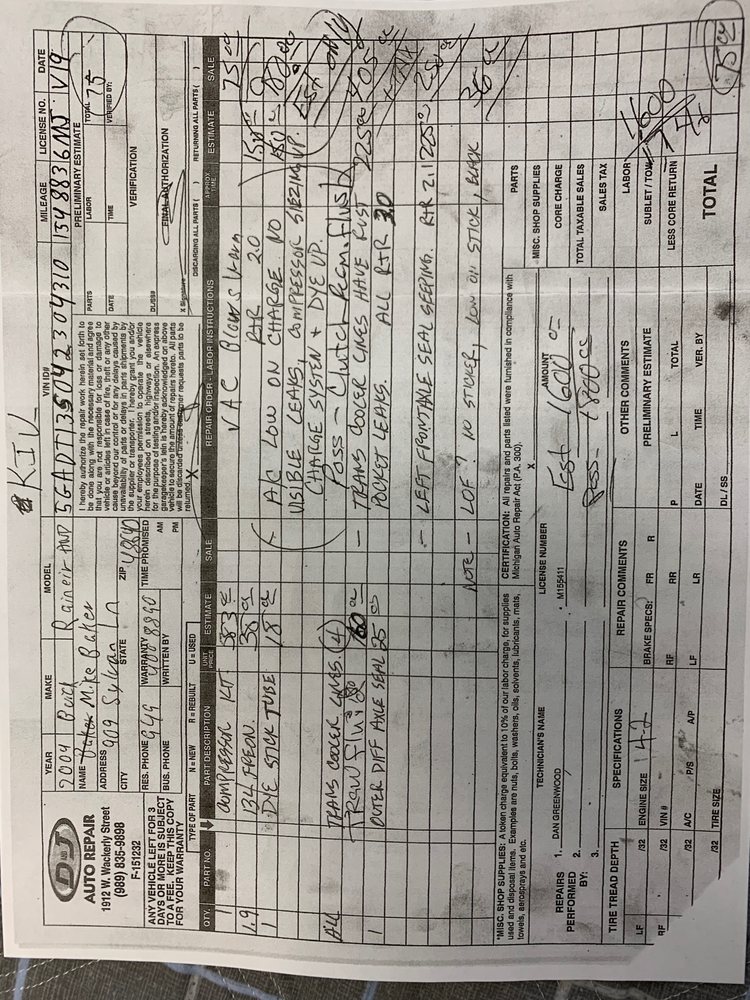 KIV
D AND J
AUTO REPAIR
1912 W. Wackerly Street
(989) 835-9898
F-151232
ANY VEHICLE LEFT FOR 3
DAYS OR MORE IS SUBJECT
TO A FEE. KEEP THIS COPY
FOR YOUR WARRANTY.
YEAR MAKE MODEL VIN ID# MILEAGE LICENSE NO. DATE
2004 Buick Rainier AWD 5GADT13S042304310 134883
NAME Baker Mike Baker
ADDRESS 909 Sylvan Ln
CITY STATE ZIP 48640
RES. PHONE 949 WARRANTY TIME PROMISED AM
BUS. PHONE WRITTEN BY PM
I hereby authorize the repair work herein set forth to
be done along with the necessary material and agree
that you are not responsible for loss or damage to
vehicle or articles left in case of fire, theft or any other
cause beyond our control or for any delays caused by
unavailability of parts or delays in parts shipments by
the supplier or transporter. I hereby grant you and/or
your employees permission to operate the vehicle
herein described on streets, highways or elsewhere
for the purpose of testing and/or inspection. An express
garagekeeper's lien is hereby acknowledged on above
vehicle to secure the amount of repairs hereto. All parts
will be discarded unless customer requests parts to be
returned. X
PRELIMINARY ESTIMATE
PARTS LABOR TOTAL 75
DATE TIME VERIFIED BY:
VERIFICATION
DL/SS#
FINAL AUTHORIZATION
X Signature
DISCARDING ALL PARTS ( ) RETURNING ALL PARTS ( )
TYPE OF PART N = NEW R = REBUILT U = USED
QTY. PART NO. PART DESCRIPTION UNIT PRICE ESTIMATE SALE REPAIR ORDER - LABOR INSTRUCTIONS APPROX. TIME ESTIMATE SALE
1 COMPRESSOR KIT √ AC Blows Warm 75
1.9 134 FREON 38 R+R 2.0 150
1 DYE STICK TUBE 18 - A/C LOW ON CHARGE NO 150
VISIBLE LEAKS, COMPRESSOR SIEZING UP.
CHARGE SYSTEM + DYE UP.
Poss - Clutch Recm. flush
ALL TRANS COOLER LINES (4) - TRANS COOLER LINES HAVE RUST 225
Tran Fluid POCKET LEAKS. ALL R+R 3.0
1 OUTER DIFF AXLE SEAL 25 - LEFT FRONT AXLE SEAL SEEPING. R+R 2.1
NOTE - LOF? NO STICKER, LOW ON STICK, BLACK
*MISC. SHOP SUPPLIES: A token charge equivalent to 10% of our labor charge, for supplies
used and disposal items. Examples are nuts, bolts, washers, oils, solvents, lubricants, mats,
towels, aerosprays and etc.
CERTIFICATION: All repairs and parts listed were furnished in compliance with
Michigan Auto Repair Act (P.A. 300).
X
TECHNICIAN'S NAME LICENSE NUMBER AMOUNT
REPAIRS PERFORMED BY:
1. DAN GREENWOOD M155411
2.
3.
Est 1600
Poss - 1800
PARTS
MISC. SHOP SUPPLIES
CORE CHARGE
TOTAL TAXABLE SALES
SALES TAX
LABOR
SUBLET / TOW
LESS CORE RETURN
TOTAL 75
TIRE TREAD DEPTH SPECIFICATIONS REPAIR COMMENTS OTHER COMMENTS
LF /32 ENGINE SIZE 4.2 BRAKE SPECS: FR R PRELIMINARY ESTIMATE
RF /32 VIN # RF RR P L TOTAL
/32 A/C P/S A/P LF LR DATE TIME VER. BY
/32 TIRE SIZE DL / SS